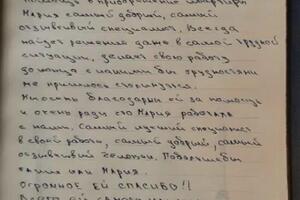 помощь в приобретении квартиры
Мария самый добрый, самый
отзывчивый специалист. Всегда
найдет решение даже в самой трудной
ситуации, делает свою работу
с какими бы трудностями
не пришлось столкнуться.
Мы очень благодарны ей за помощь
и очень рады что Мария работала
с нами. Самый лучший специалист
в своей работы, самый добрый, самый
отзывчивый человек. Побольше бы
таких как Мария.
Огромное ей спасибо!!
ей